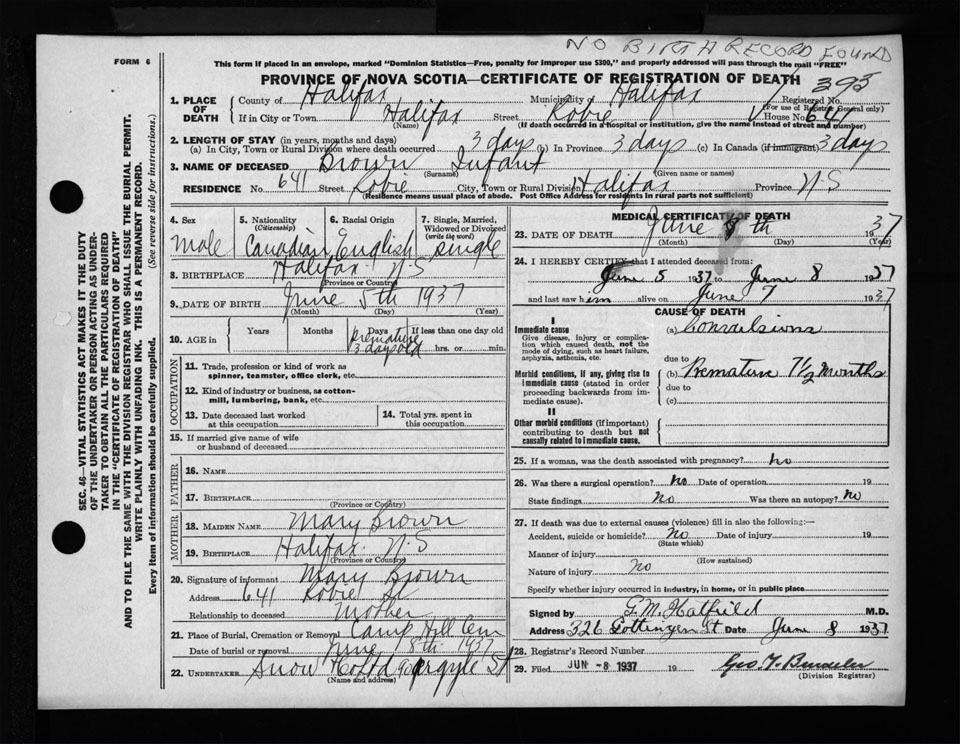 NO BIRTH RECORD FOUND
FORM 6
This form if placed in an envelope, marked "Dominion Statistics—Free, penalty for improper use $300," and properly addressed will pass through the mail "FREE"
PROVINCE OF NOVA SCOTIA—CERTIFICATE OF REGISTRATION OF DEATH
393
1. PLACE OF DEATH
County of Halifax Municipality of Halifax Registered No.
(For use of Registrar General only)
If in City or Town Halifax Street Robie House No. 641
(Name) (If death occurred in a hospital or institution, give the name instead of street and number)
2. LENGTH OF STAY (in years, months and days)
(a) In City, Town or Rural Division where death occurred 3 days (b) In Province 3 days (c) In Canada (if immigrant) 3 days
3. NAME OF DECEASED Brown Infant
(Surname) (Given name or names)
RESIDENCE No. 641 Street Robie City, Town or Rural Division Halifax Province N S
(Residence means usual place of abode. Post Office Address for residents in rural parts not sufficient)
4. Sex
Male
5. Nationality
(Citizenship)
Canadian
6. Racial Origin
English
7. Single, Married, Widowed or Divorced
(write the word)
Single
8. BIRTHPLACE Halifax N S
(Province or Country)
9. DATE OF BIRTH June 5th 1937
(Month) (Day) (Year)
10. AGE in
Years Months Days If less than one day old
premature
3 days old hrs. or min.
OCCUPATION
11. Trade, profession or kind of work as spinner, teamster, office clerk, etc.
12. Kind of industry or business, as cotton-mill, lumbering, bank, etc.
13. Date deceased last worked at this occupation
14. Total yrs. spent in this occupation
15. If married give name of wife or husband of deceased
FATHER
16. NAME
17. BIRTHPLACE
(Province or Country)
MOTHER
18. MAIDEN NAME Mary Brown
19. BIRTHPLACE Halifax N.S
(Province or Country)
20. Signature of informant Mary Brown
Address 641 Robie St
Relationship to deceased Mother
21. Place of Burial, Cremation or Removal Camp Hill Cem
Date of burial or removal June 8th 1937
22. UNDERTAKER Snow & Co Ltd 90 Argyle St
(Name and address)
MEDICAL CERTIFICATE OF DEATH
23. DATE OF DEATH June 8th 1937
(Month) (Day) (Year)
24. I HEREBY CERTIFY that I attended deceased from:
June 5 1937 to June 8 1937
and last saw him alive on June 7 1937
CAUSE OF DEATH
I
Immediate cause
Give disease, injury or complication which caused death, not the mode of dying, such as heart failure, asphyxia, asthenia, etc.
(a) Convulsions
due to
Morbid conditions, if any, giving rise to immediate cause (stated in order proceeding backwards from immediate cause).
(b) Premature 7 1/2 months
due to
(c)
II
Other morbid conditions (if important) contributing to death but not causally related to immediate cause.
25. If a woman, was the death associated with pregnancy? no
26. Was there a surgical operation? no Date of operation 19
State findings no Was there an autopsy? no
27. If death was due to external causes (violence) fill in also the following:—
Accident, suicide or homicide? no Date of injury 19
(State which)
Manner of injury
(How sustained)
Nature of injury no
Specify whether injury occurred in industry, in home, or in public place
Signed by G. M. Hatfield M.D.
Address 326 Gottingen St Date June 8 1937
28. Registrar's Record Number
29. Filed JUN -8 1937 19
(Division Registrar)
SEC. 46—VITAL STATISTICS ACT MAKES IT THE DUTY
OF THE UNDERTAKER OR PERSON ACTING AS UNDER-
TAKER TO OBTAIN ALL THE PARTICULARS REQUIRED
IN THE "CERTIFICATE OF REGISTRATION OF DEATH"
AND TO FILE THE SAME WITH THE DIVISION REGISTRAR WHO SHALL ISSUE THE BURIAL PERMIT.
WRITE PLAINLY WITH UNFADING INK. THIS IS A PERMANENT RECORD.
Every item of information should be carefully supplied. (See reverse side for instructions.)